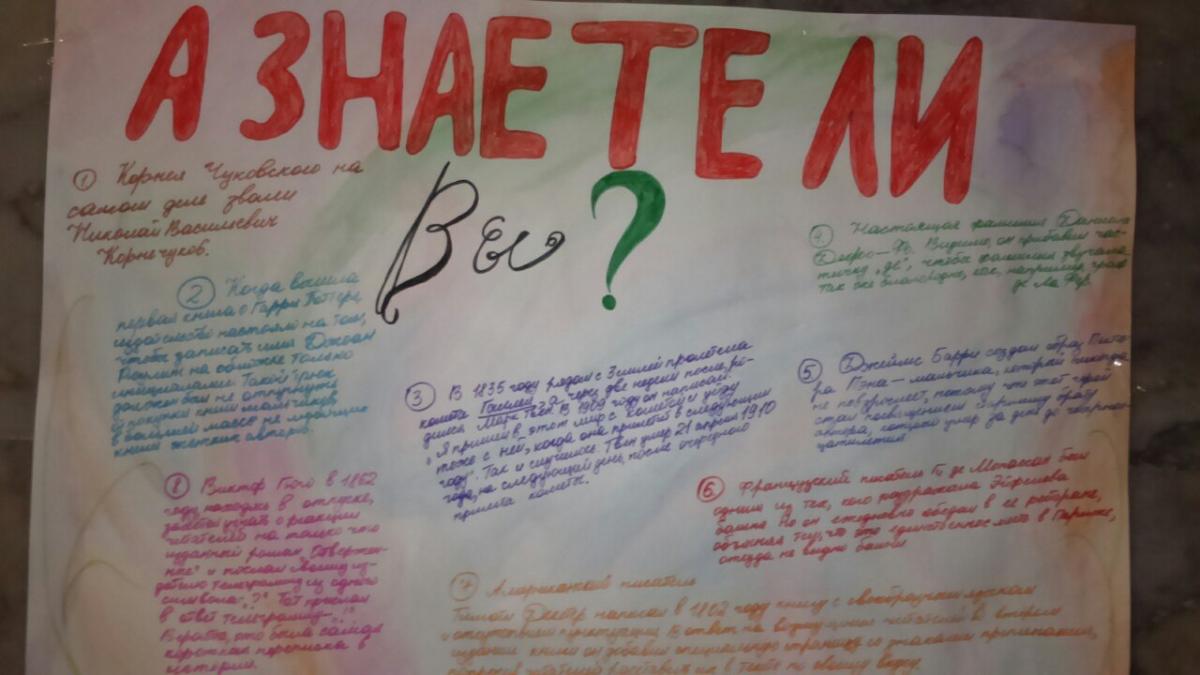 А ЗНАЕТЕ ЛИ
Вы ?
① Корнея Чуковского на
самом деле звали
Николай Василиевич
Корнейчуков.
② Когда вышла
первая книга о Гарри Поттере,
издательство настояло на том,
чтобы записать имя Джоан
Роулинг на обложке только
инициалами. Такой трюк
должен был не отпугнуть
от покупки книги мальчиков,
в большей массе не любящих
книги женских авторов.
③ В 1835 году рядом с Землёй пролетела
комета Галлея, а через две недели после ро-
дился Марк Твен. В 1909 году он написал:
"Я пришёл в этот мир с кометой и уйду
тоже с ней, когда она придёт в следующем
году". Так и случилось: Твен умер 21 апреля 1910
года, на следующий день, после очередного
прилёта кометы.
④ Настоящая фамилия Даниэля
Дефо — Фо. Видимо, он прибавил час-
тичку "де", чтобы фамилия звучала
так же благородно, как, например, граф
де ла Фер.
⑤ Джеймс Барри создал образ Пите-
ра Пэна — мальчика, который никогда
не повзрослеет, потому что этот герой
стал посвящением старшему брату
автора, который умер за день до четырнад-
цатилетия
⑥ Французский писатель Ги де Мопассан был
одним из тех, кого раздражала Эйфелева
башня. Но он ежедневно обедал в её ресторане,
объясняя тем, что это единственное место в Париже,
откуда не видно башни
⑦ Американский писатель
Тимоти Декстер написал в 1802 году книгу с своеобразным языком
и отсутствием пунктуации. В ответ на возмущение читателей во втором
издании книги он добавил специальную страницу со знаками препинания,
попросив читателей расставить их в тексте по своему вкусу.
⑧ Виктор Гюго в 1862
году, находясь в отпуске,
захотел узнать о реакции
читателей на только что
изданный роман "Отвержен-
ные" и послал своему из-
дателю телеграмму из одного
символа: "?" Тот прислал
в ответ телеграмму — "!"
Вероятно, это была самая
короткая переписка в
истории.